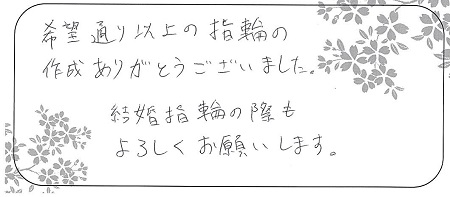 希望通り以上の指輪の
作成ありがとうございました。
結婚指輪の際も
よろしくお願いします。